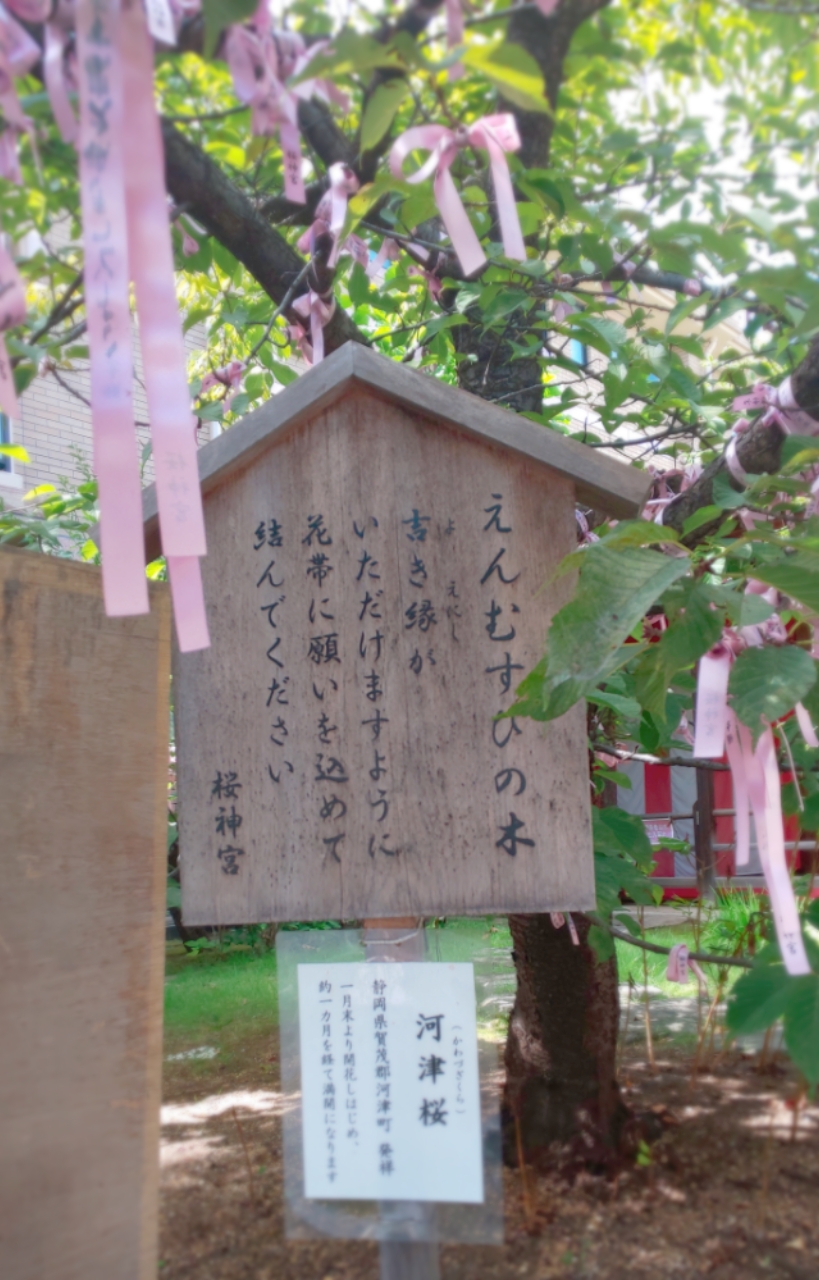 えんむすびの木
よ えにし
吉き縁が
いただけますように
花帯に願いを込めて
結んでください
桜神宮
(かわづざくら)
河津桜
静岡県賀茂郡河津町 発祥
一月末より開花しはじめ、
約一カ月を経て満開になります
桜神宮